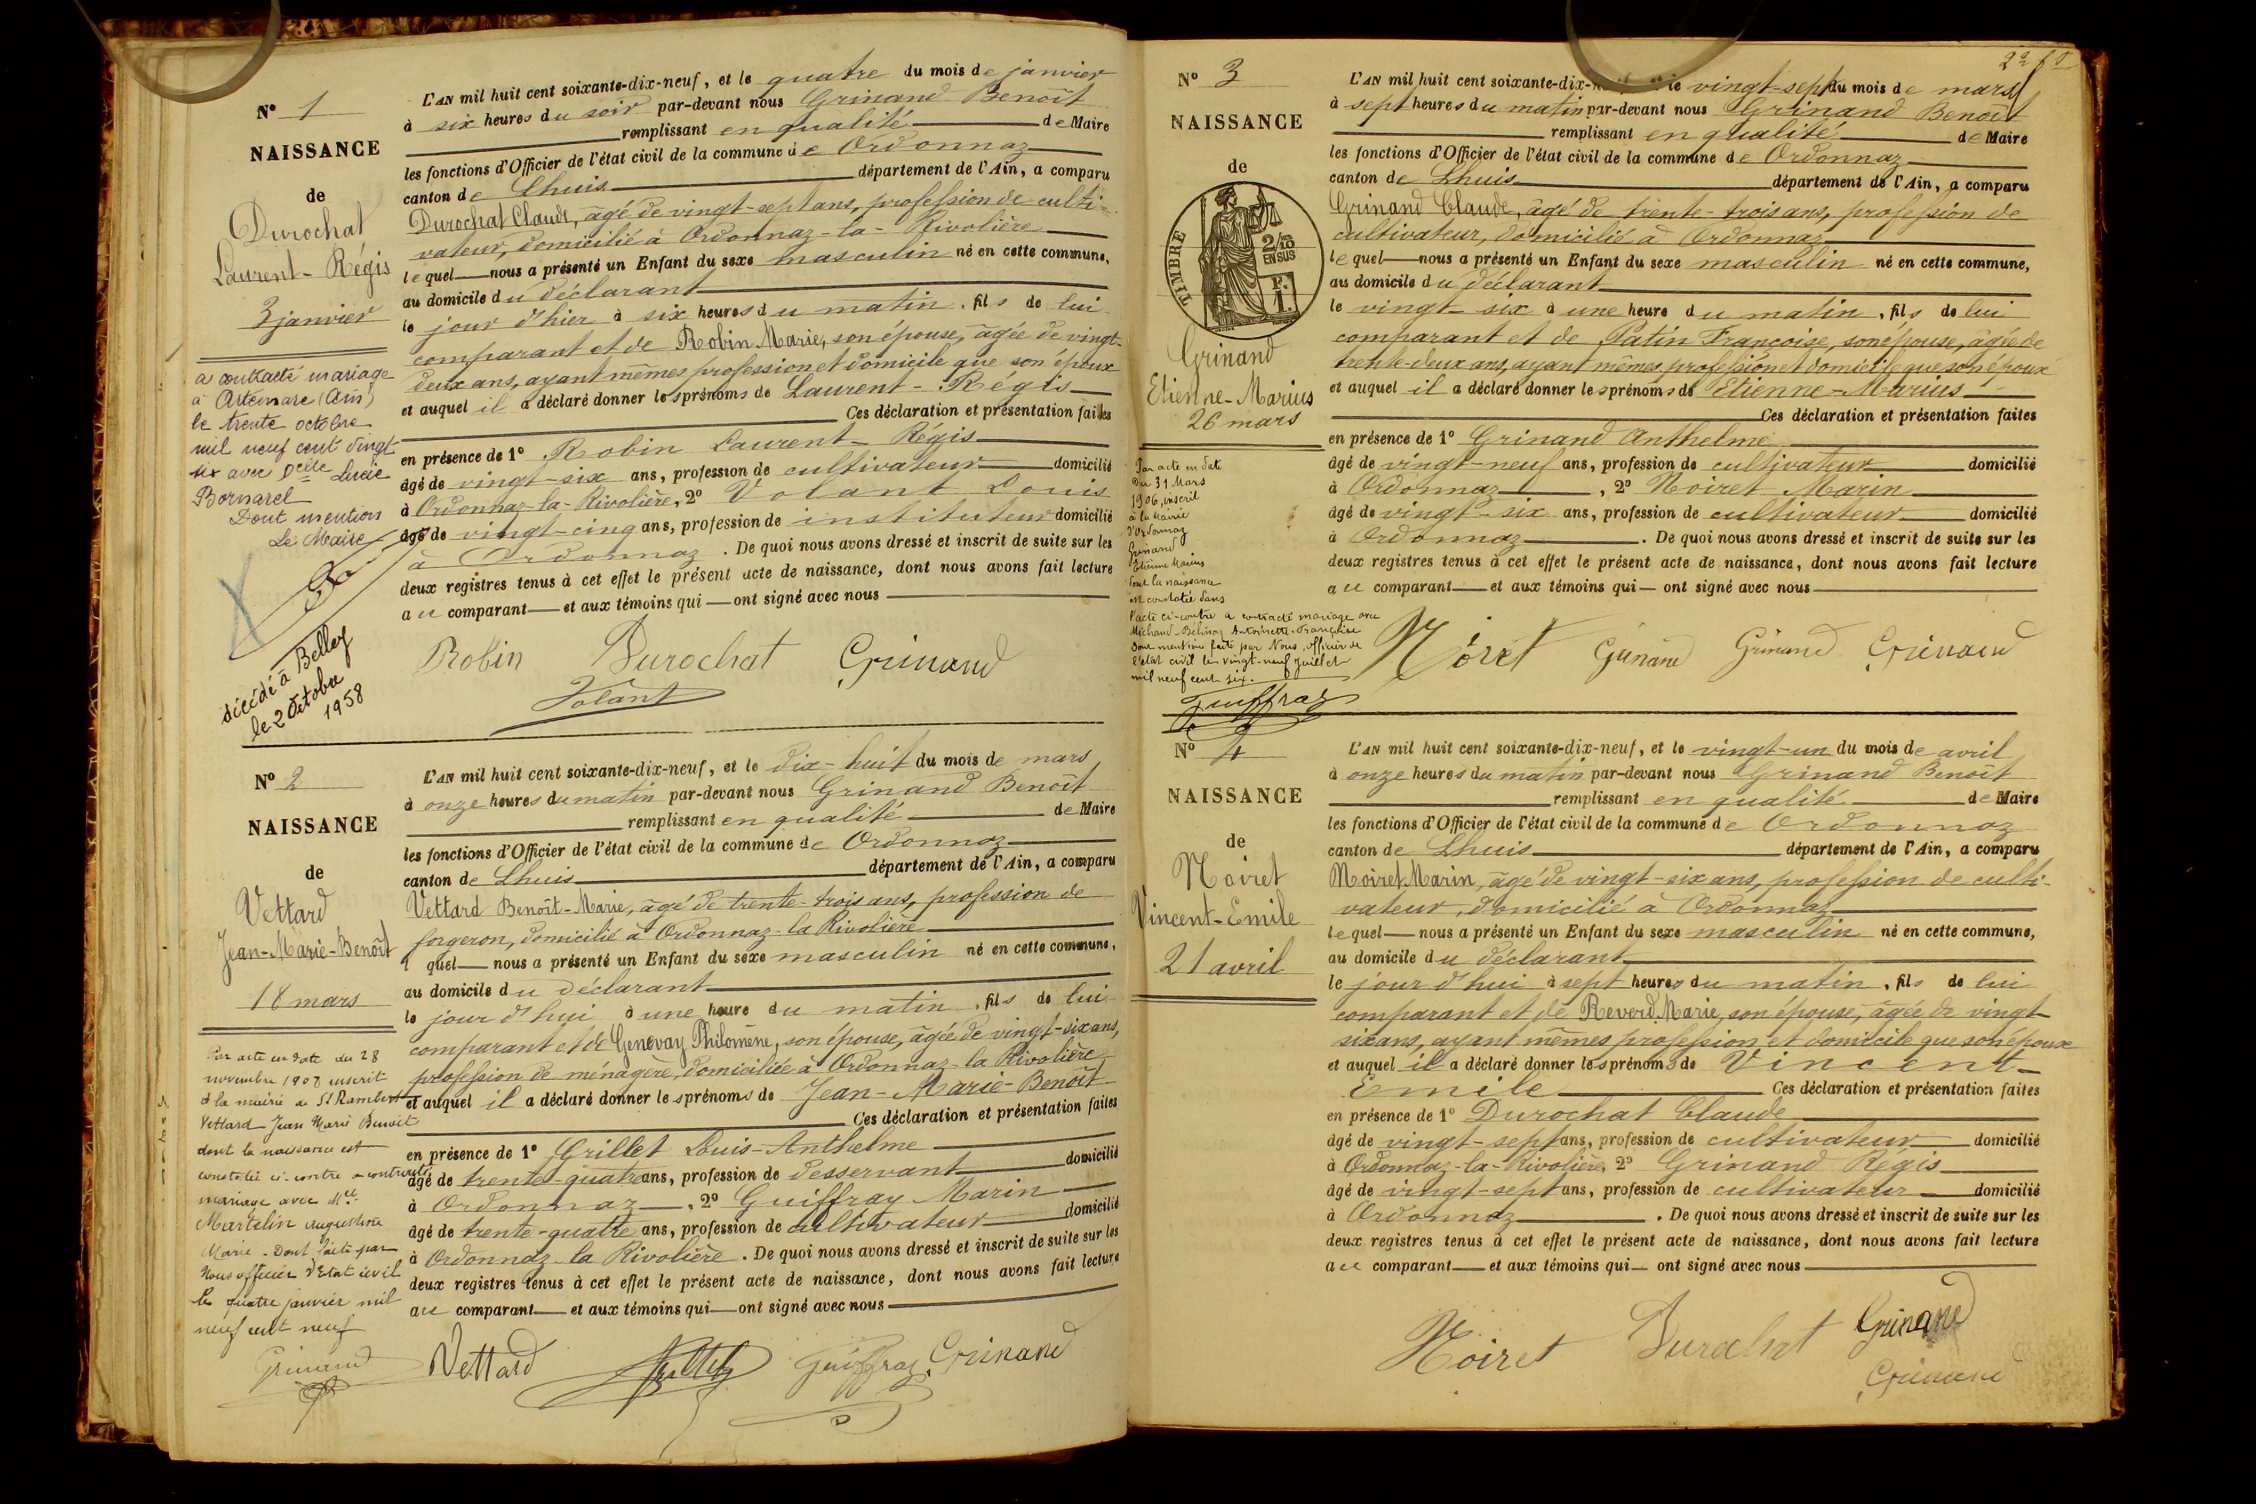 N° 1
NAISSANCE
de
Durochat
Laurent-Régis
3 janvier
a contracté mariage
à Artemare (Ain)
le trente octobre
mil neuf cent vingt
six avec Delle Lucie
Bornarel
Dont mention
Le Maire
décédé à Belley
le 2 Octobre
1958
L'AN mil huit cent soixante-dix-neuf, et le quatre du mois de janvier
à six heures du soir par-devant nous Grinand Benoît
remplissant en qualité de Maire
les fonctions d'Officier de l'état civil de la commune de Ordonnaz
canton de Lhuis département de l'Ain, a comparu
Durochat Claude, âgé de vingt-sept ans, profession de culti-
vateur, domicilié à Ordonnaz-la-Rivolière
lequel nous a présenté un Enfant du sexe masculin né en cette commune,
au domicile du déclarant
le jour d'hier à six heures du matin, fils de lui
comparant et de Robin Marie, son épouse, âgée de vingt-
deux ans, ayant mêmes profession et domicile que son époux
et auquel il a déclaré donner les prénoms de Laurent-Régis
Ces déclaration et présentation faites
en présence de 1° Robin Laurent-Régis
âgé de vingt-six ans, profession de cultivateur domicilié
à Ordonnaz-la-Rivolière, 2° Volant Louis
âgé de vingt-cinq ans, profession de instituteur domicilié
à Ordonnaz. De quoi nous avons dressé et inscrit de suite sur les
deux registres tenus à cet effet le présent acte de naissance, dont nous avons fait lecture
au comparant et aux témoins qui ont signé avec nous
Robin Durochat Grinand
Volant
N° 2
NAISSANCE
de
Vettard
Jean-Marie-Benoît
18 mars
Par acte en date du 28
novembre 1908 inscrit
à la mairie de St Rambert
Vettard Jean Marie Benoit
dont la naissance est
constatée ci-contre a contracté
mariage avec Melle
Martelin Augustine
Marie - Dont faite par
Nous officier d'Etat civil
le quatre janvier mil
neuf cent neuf
Grinand
L'AN mil huit cent soixante-dix-neuf, et le dix-huit du mois de mars
à onze heures du matin par-devant nous Grinand Benoît
remplissant en qualité de Maire
les fonctions d'Officier de l'état civil de la commune de Ordonnaz
canton de Lhuis département de l'Ain, a comparu
Vettard Benoît-Marie, âgé de trente-trois ans, profession de
forgeron, domicilié à Ordonnaz-la Rivolière
l quel nous a présenté un Enfant du sexe masculin né en cette commune,
au domicile du déclarant
le jour d'hui à une heure du matin, fils de lui
comparant et de Genevay Philomène, son épouse, âgée de vingt-six ans,
profession de ménagère, domiciliée à Ordonnaz-la Rivolière
et auquel il a déclaré donner les prénoms de Jean-Marie-Benoît
Ces déclaration et présentation faites
en présence de 1° Grillet Louis-Anthelme
âgé de trente-quatre ans, profession de desservant domicilié
à Ordonnaz, 2° Guiffray Marin
âgé de trente-quatre ans, profession de cultivateur domicilié
à Ordonnaz la Rivolière. De quoi nous avons dressé et inscrit de suite sur les
deux registres tenus à cet effet le présent acte de naissance, dont nous avons fait lecture
au comparant et aux témoins qui ont signé avec nous
Vettard Grillet Guiffray Grinand
N° 3
NAISSANCE
de
TIMBRE
2/10
EN SUS
F.
1.
Grinand
Etienne-Marius
26 mars
Par acte en date
du 31 Mars
1906, inscrit
à la Mairie
d'Ordonnaz
Grinand
Etienne Marius
dont la naissance
est constatée dans
l'acte ci-contre a contracté mariage avec
Antoinette-Françoise
Dont mention faite par Nous, officier de
l'état civil le vingt-neuf juillet
mil neuf cent six.
Guiffray
L'AN mil huit cent soixante-dix- le vingt-sept du mois de mars
à sept heures du matin par-devant nous Grinand Benoît
remplissant en qualité de Maire
les fonctions d'Officier de l'état civil de la commune de Ordonnaz
canton de Lhuis département de l'Ain, a comparu
Grinand Claude, âgé de trente-trois ans, profession de
cultivateur, domicilié à Ordonnaz
lequel nous a présenté un Enfant du sexe masculin né en cette commune,
au domicile du déclarant
le vingt-six à une heure du matin, fils de lui
comparant et de Patin Françoise, son épouse, âgée de
trente-deux ans, ayant mêmes profession et domicile que son époux
et auquel il a déclaré donner les prénoms de Etienne-Marius
Ces déclaration et présentation faites
en présence de 1° Grinand Anthelme
âgé de vingt-neuf ans, profession de cultivateur domicilié
à Ordonnaz, 2° Noiret Marin
âgé de vingt-six ans, profession de cultivateur domicilié
à Ordonnaz. De quoi nous avons dressé et inscrit de suite sur les
deux registres tenus à cet effet le présent acte de naissance, dont nous avons fait lecture
au comparant et aux témoins qui ont signé avec nous
Noiret Grinand Grinand Grinand
N° 4
NAISSANCE
de
Noiret
Vincent-Emile
21 avril
L'AN mil huit cent soixante-dix-neuf, et le vingt-un du mois de avril
à onze heures du matin par-devant nous Grinand Benoît
remplissant en qualité de Maire
les fonctions d'Officier de l'état civil de la commune de Ordonnaz
canton de Lhuis département de l'Ain, a comparu
Noiret Marin, âgé de vingt-six ans, profession de culti-
vateur, domicilié à Ordonnaz
lequel nous a présenté un Enfant du sexe masculin né en cette commune,
au domicile du déclarant
le jour d'hui à sept heures du matin, fils de lui
comparant et de Reverd Marie, son épouse, âgée de vingt-
six ans, ayant mêmes profession et domicile que son époux
et auquel il a déclaré donner les prénoms de Vincent-
Emile Ces déclaration et présentation faites
en présence de 1° Durochat Claude
âgé de vingt-sept ans, profession de cultivateur domicilié
à Ordonnaz-la-Rivolière, 2° Grinand Régis
âgé de vingt-sept ans, profession de cultivateur domicilié
à Ordonnaz. De quoi nous avons dressé et inscrit de suite sur les
deux registres tenus à cet effet le présent acte de naissance, dont nous avons fait lecture
au comparant et aux témoins qui ont signé avec nous
Noiret Durochat Grinand
Grinand